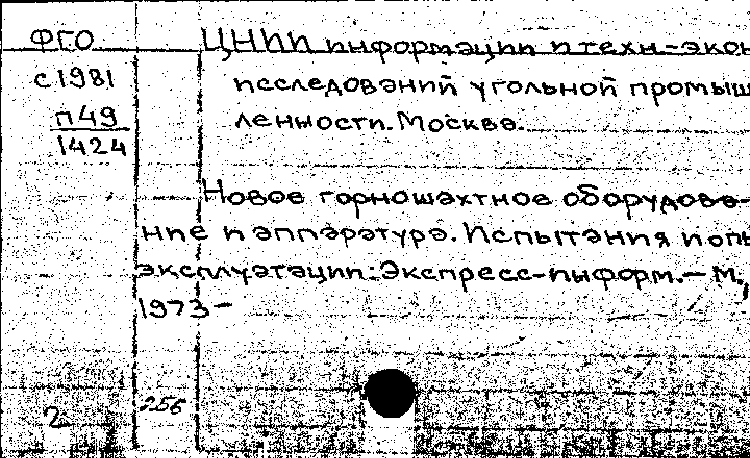 ФГО ЦНИИ информации и техн-экон
с1981 исследований угольной промыш
п49 ленности. Москва.
1424
Новое горношахтное оборудова-
ние и аппаратура. Испытания и опы
эксплуатации: Экспресс-информ.- М.,
1973-
2 256